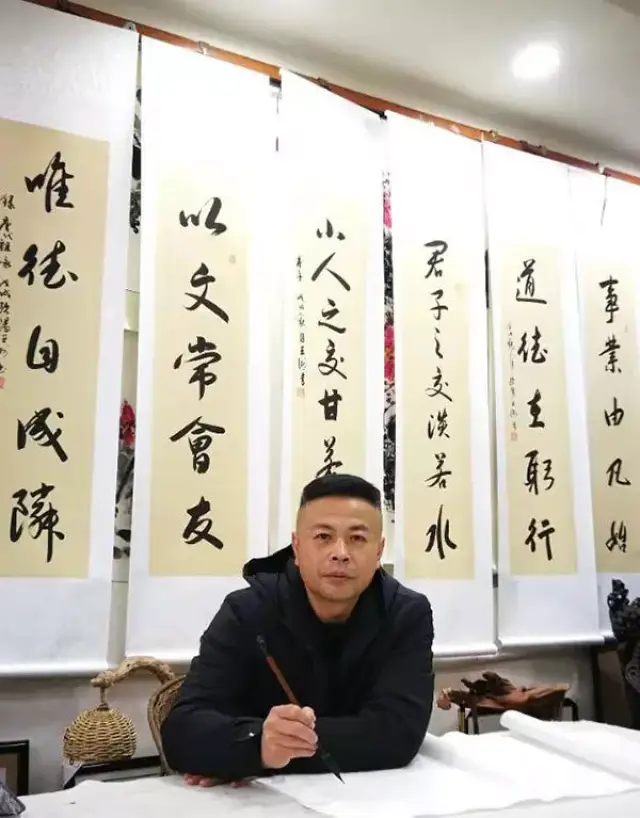 事業由凡始
道德在躬行
君子之交淡若水
小人之交甘若
以文常會友
唯德自成隣